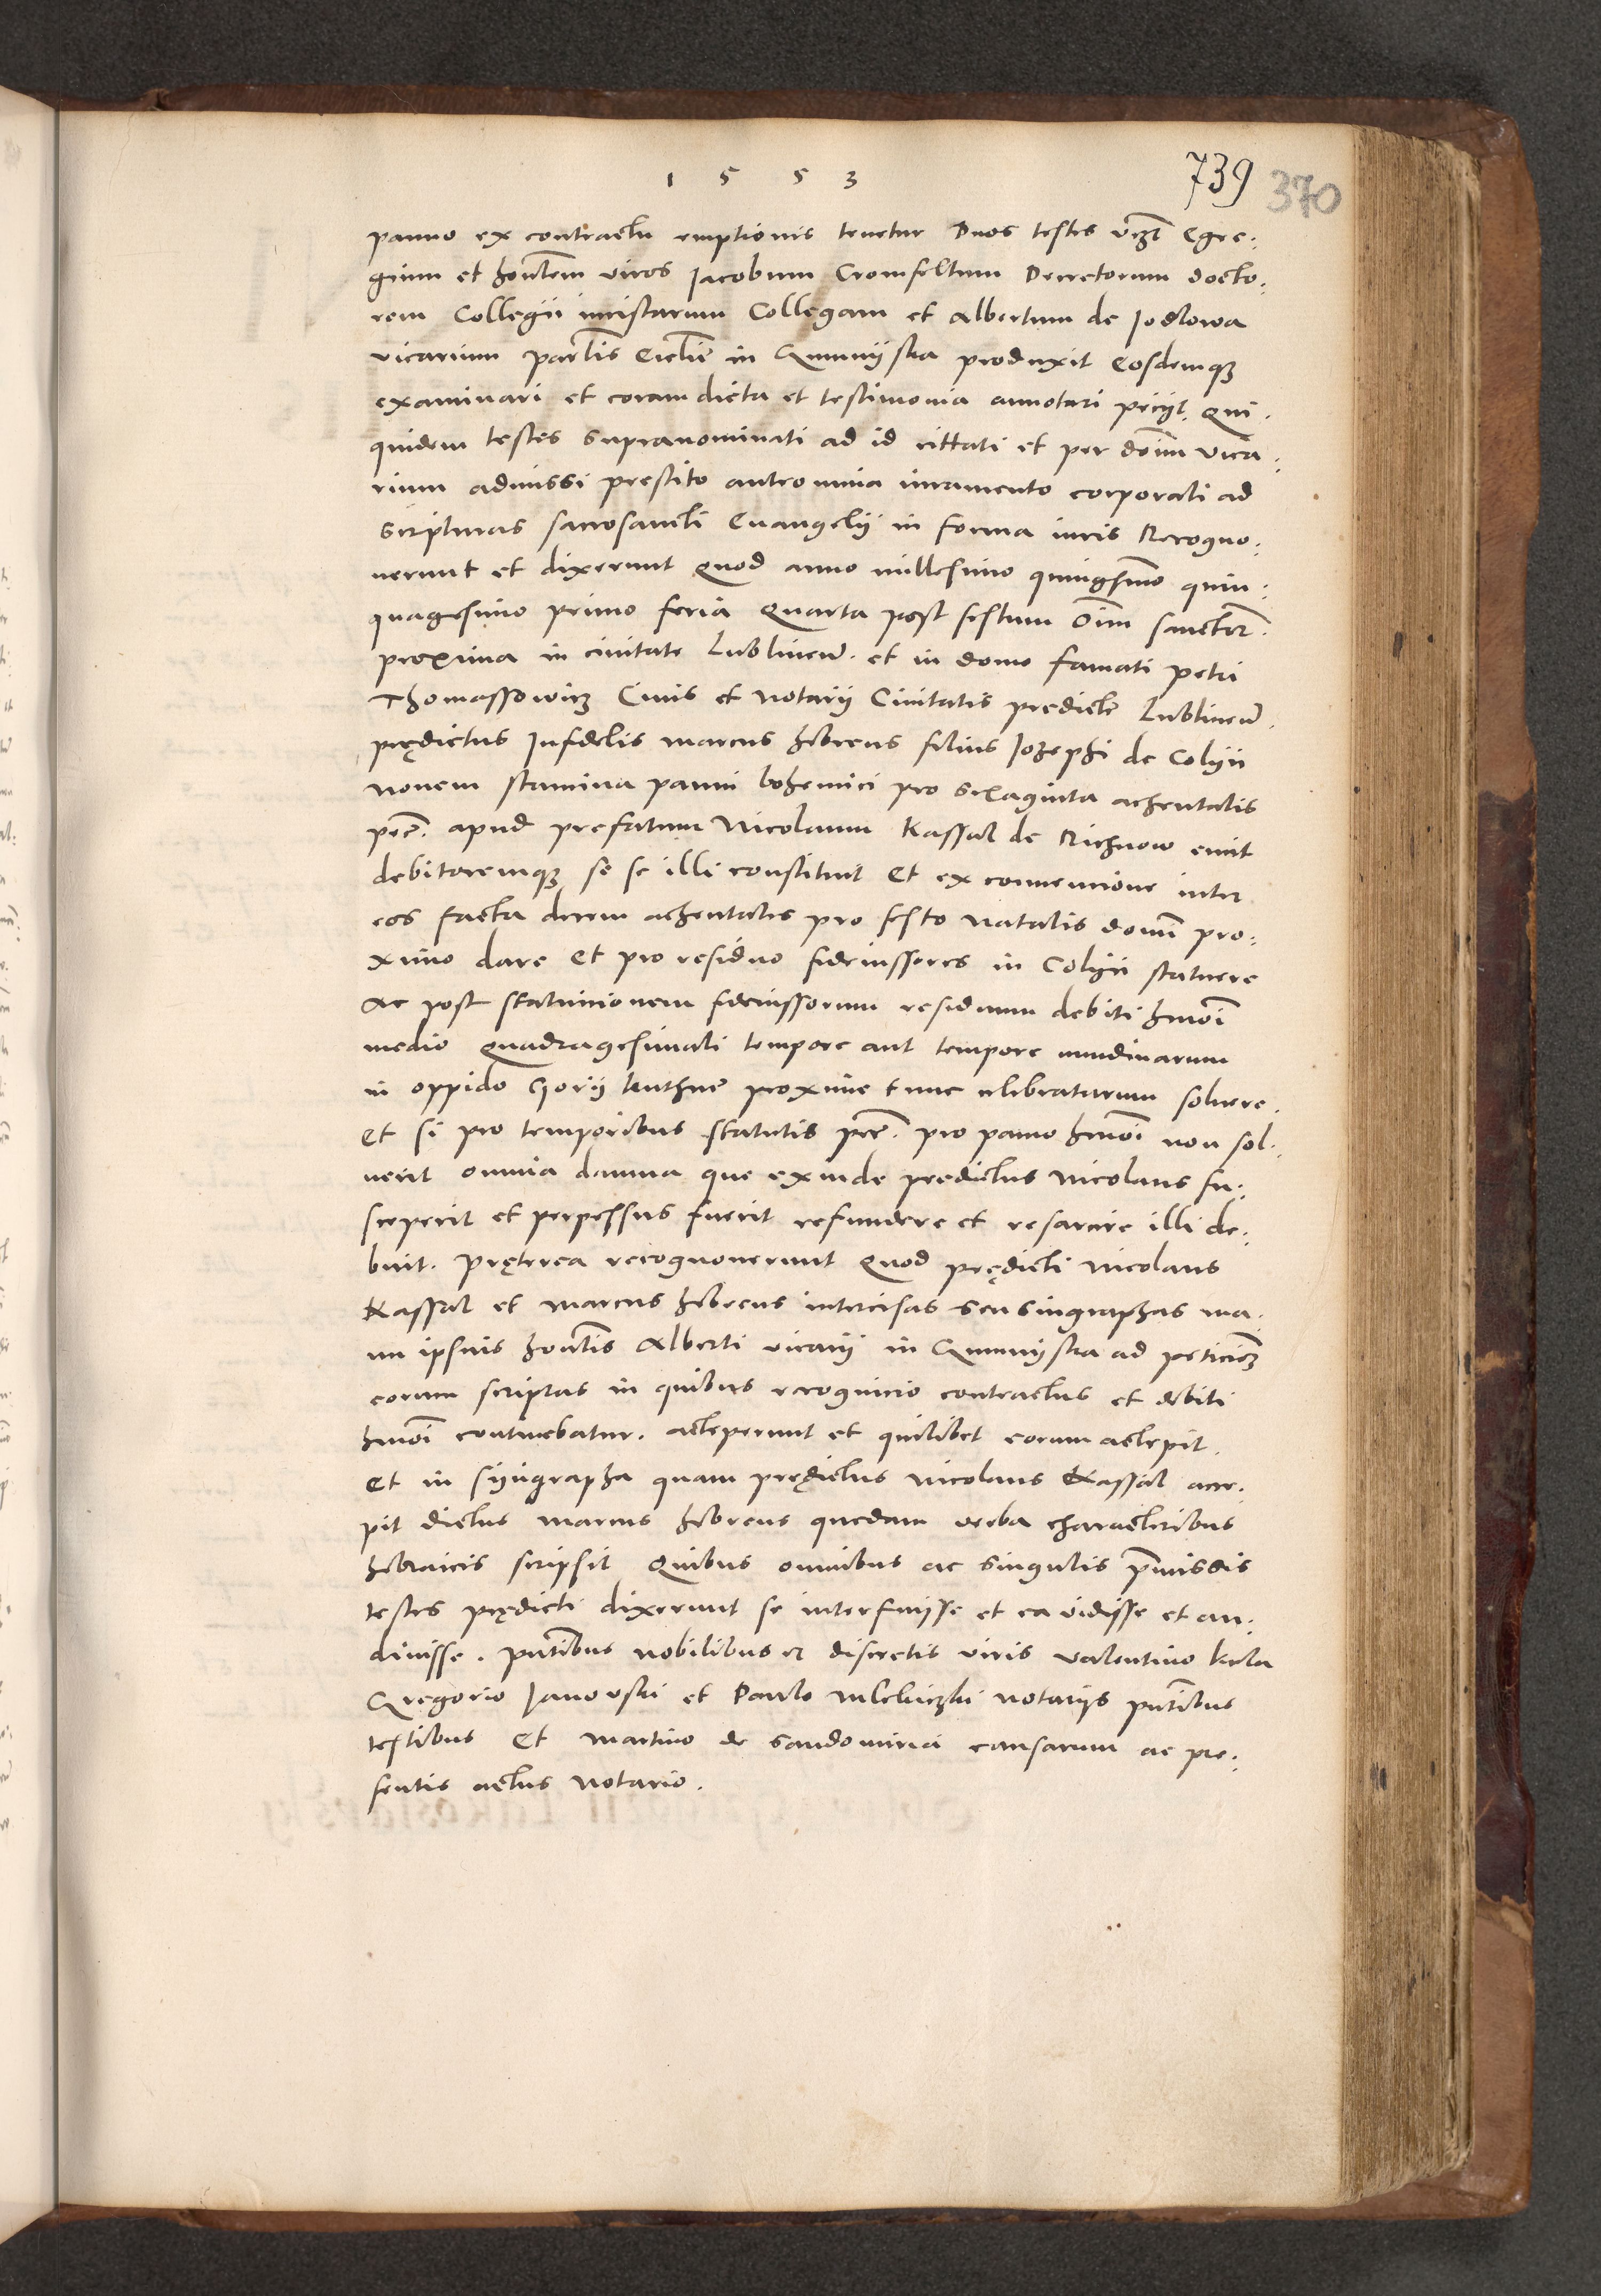 1553
739 370
panno ex contractu emptionis tenetur Duos testes vizt Egre:
gium et honlem viros Jacobum Cromfeltum Decretorum docto:
rem Collegii iuristarum Collegam et Albertum de Jodlowa
vicarium parlis Ecclie in Grunnijska produxit Eosdemq3
examinari et eorum dicta et testimonia annotari peciit. Qui:
quidem testes supranominati ad id cittati et per dnum vica:
rium admissi prestito autro iuramento corporali ad
scripturas sacrosancti Evangelij in forma iuris Recogno:
verunt et dixerunt Quod anno millesimo quingesimo quin:
quagesimo primo feria Quarta post festum Oim sanctor.
proxima in civitate Lublinen. et in domo famati petri
Thomassowicz Civis et Notarij Civitatis predicte Lublinen.
prędictus Infidelis Marcus hebreus filius Jozephi de Colijn
novem stamina panni bohemici pro sexaginta achentalis
pec. apud prefatum Nicolaum Kassal de Richnow emit
debitoremq3 se se illi constituit Et ex conventione inter
eos facta decem achentales pro festo Natalis domi pro:
ximo dare Et pro residuo fideiussores in Colijn statuere
Ac post statuicionem fideiussorum residuum debiti hmoi
medio Quadragesimali tempore aut tempore nundinarum
in oppido Gorij kuthne proxime tunc celebraturum solvere.
Et si pro temporibus statutis pec. pro panno hmoi non sol:
verit omnia damna que exinde predictus Nicolaus su:
sceperit et perpessus fuerit refundere et resarcire illi de:
buit. Prętrea recognoverunt Quod prędicti Nicolaus
Kassal et Marcus hebreus intercisas seu singraphas ma:
nu ipsius honlis Alberti vicarij in Grunnijska ad peticioem
eorum scriptas in quibus recognicio contractus et debiti
hmoi continebatur. acceperunt et quilibet eorum accepit.
Et in sijngrapha quam prędictus Nicolaus Kassal acce:
pit dictus Marcus hebreus quedam verba characteribus
hebraicis scripsit Quibus omnibus ac singulis pmissis
testes prędicti dixerunt se interfuisse et ea vidisse et au:
divisse. Pntibus nobilibus et discretis viris Valentino Kula
Gregorio Janovski et Paulo Mlehiczki notarijs pntibus
testibus Et Martino de Sandomiria causarum ac pre:
sentis actus Notario.